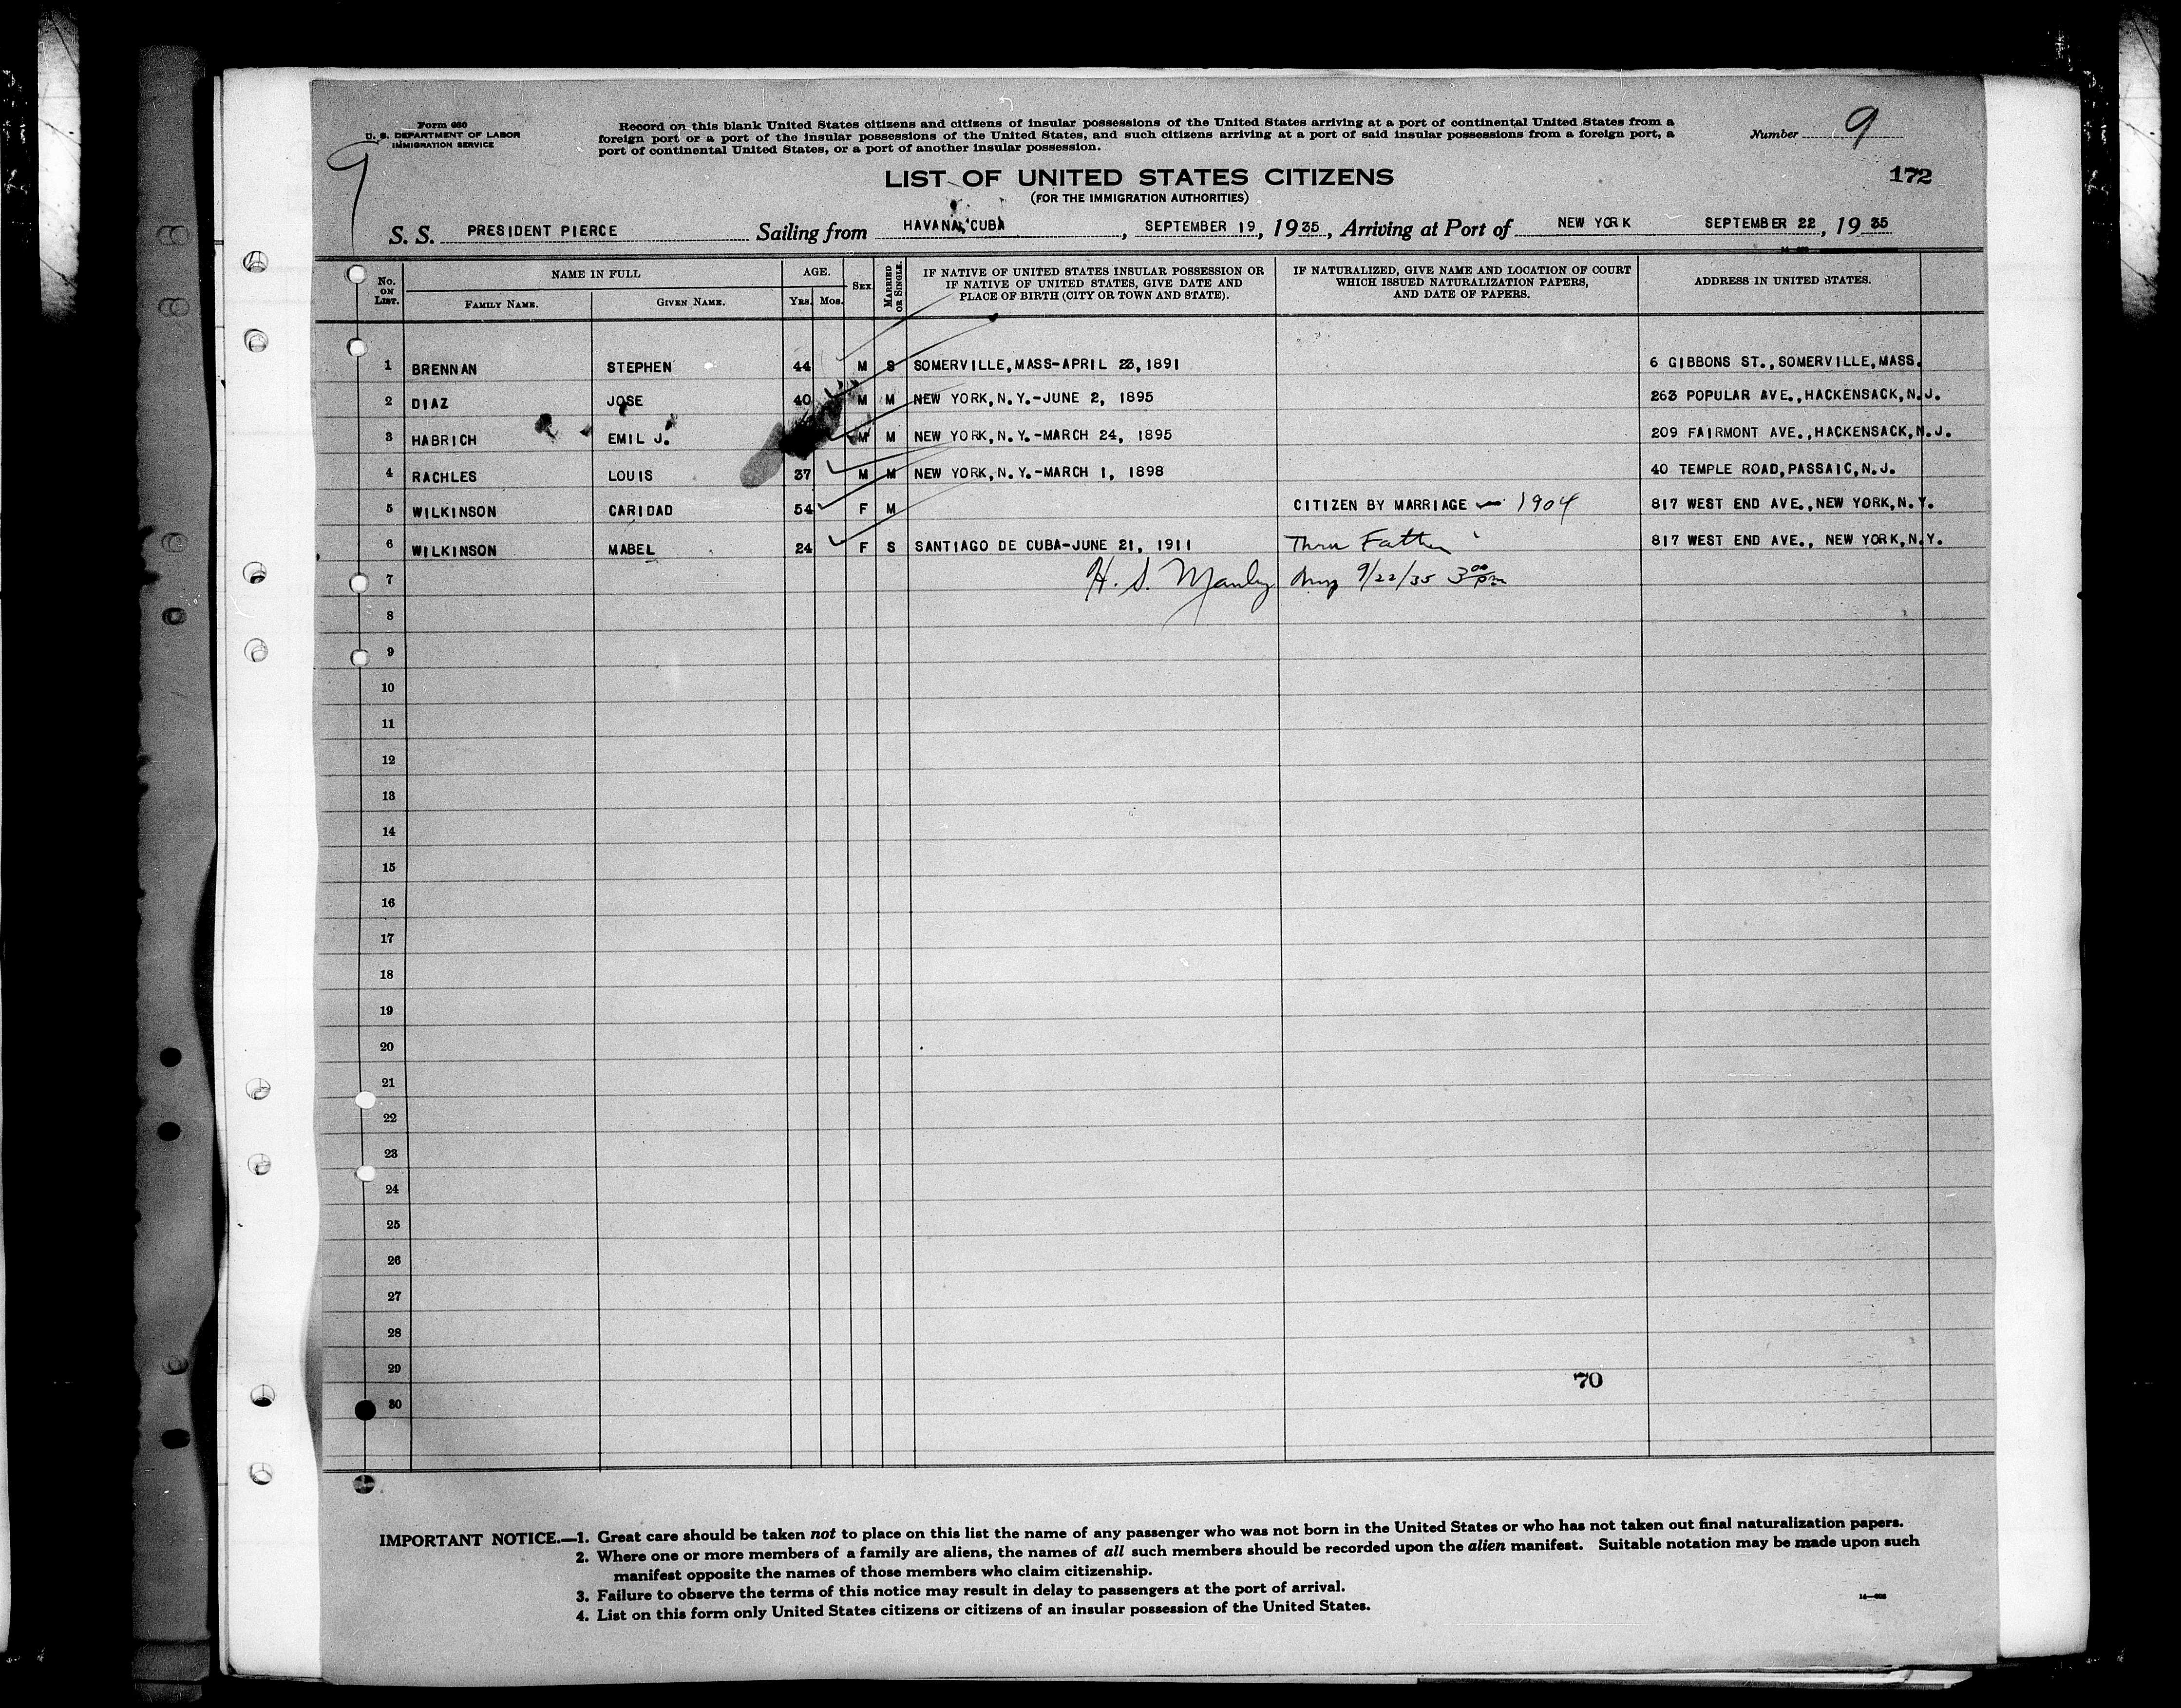 Form 630
U. S. DEPARTMENT OF LABOR
IMMIGRATION SERVICE
9
Record on this blank United States citizens and citizens of insular possessions of the United States arriving at a port of continental United States from a
foreign port or a port of the insular possessions of the United States, and such citizens arriving at a port of said insular possessions from a foreign port, a
port of continental United States, or a port of another insular possession.
Number 9
172
LIST OF UNITED STATES CITIZENS
(FOR THE IMMIGRATION AUTHORITIES)
S. S. PRESIDENT PIERCE Sailing from HAVANA, CUBA, SEPTEMBER 19, 1935, Arriving at Port of NEW YORK SEPTEMBER 22, 1935
No. ON LIST. NAME IN FULL FAMILY NAME. GIVEN NAME. AGE. YRS. MOS. SEX MARRIED OR SINGLE. IF NATIVE OF UNITED STATES INSULAR POSSESSION OR IF NATIVE OF UNITED STATES, GIVE DATE AND PLACE OF BIRTH (CITY OR TOWN AND STATE). IF NATURALIZED, GIVE NAME AND LOCATION OF COURT WHICH ISSUED NATURALIZATION PAPERS, AND DATE OF PAPERS. ADDRESS IN UNITED STATES.
1 BRENNAN STEPHEN 44 M S SOMERVILLE, MASS-APRIL 23, 1891 6 GIBBONS ST., SOMERVILLE, MASS.
2 DIAZ JOSE 40 M M NEW YORK, N.Y.-JUNE 2, 1895 263 POPULAR AVE., HACKENSACK, N.J.
3 HABRICH EMIL J. M M NEW YORK, N.Y.-MARCH 24, 1895 209 FAIRMONT AVE., HACKENSACK, N.J.
4 RACHLES LOUIS 37 M M NEW YORK, N.Y.-MARCH 1, 1898 40 TEMPLE ROAD, PASSAIC, N.J.
5 WILKINSON CARIDAD 54 F M CITIZEN BY MARRIAGE - 1904 817 WEST END AVE., NEW YORK, N.Y.
6 WILKINSON MABEL 24 F S SANTIAGO DE CUBA-JUNE 21, 1911 Thru Father 817 WEST END AVE., NEW YORK, N.Y.
7 H. S. Manly 9/22/35 3 00 pm
8
9
10
11
12
13
14
15
16
17
18
19
20
21
22
23
24
25
26
27
28
29
70
30
IMPORTANT NOTICE.—1. Great care should be taken not to place on this list the name of any passenger who was not born in the United States or who has not taken out final naturalization papers.
2. Where one or more members of a family are aliens, the names of all such members should be recorded upon the alien manifest. Suitable notation may be made upon such
manifest opposite the names of those members who claim citizenship.
3. Failure to observe the terms of this notice may result in delay to passengers at the port of arrival.
4. List on this form only United States citizens or citizens of an insular possession of the United States.